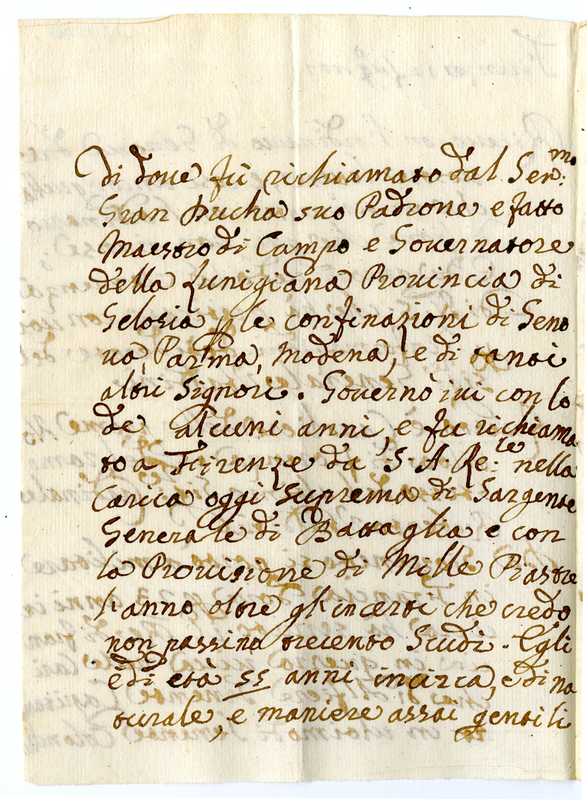 di dove fù richiamato dal Ser.mo
Gran Ducha suo Padrone e fatto
Maestro di Campo e Governatore
della Lunigiana Provincia di
Gelosia p le confinazioni di Geno
va, Parma, Modena, e di tanti
altri Signori. Governò ivi con lo
de alcuni anni, e fu richiama
to a Firenze da S. A. Re.le nella
Carica oggi suprema di Sargente
Generale di Battaglia e con
la Provisione di Mille Piastre
l'anno oltre gl'incerti che credo
non passino trecento Scudi. Egli
è di età 55 anni incirca, e di na
turale, e maniere assai gentili